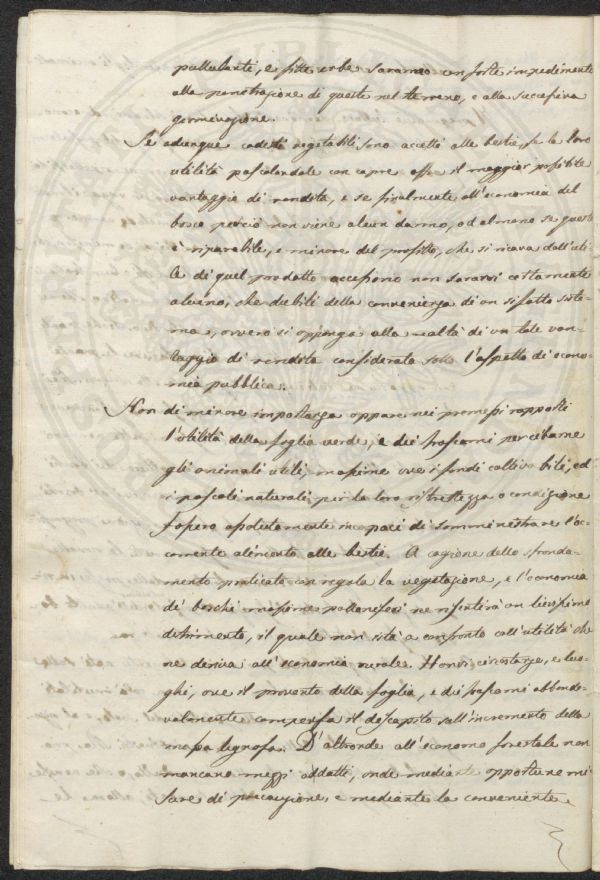 pullulanti, e fitte erbe saranno un forte impedimento
alla penetrazione di queste nel terreno, e alla successiva
germinazione.
Se adunque codesti vegetabili sono accetti alle bestie, se la loro
utilità pascolandole con capre offre il maggior possibile
vantaggio di rendita, e se finalmente all'economia del
bosco perciò non viene alcun danno, od almeno se questo
è riparabile, e minore del profitto, che si ricava dall'uti-
le di quel prodotto accessorio non saravvi certamente
alcuno, che dubiti della convenienza di un sifatto siste-
ma, ovvero si opponga alla realtà di un tale van-
taggio di rendita considerata sotto l'aspetto di econo-
mia pubblica.
Non di minore importanza appare nei premessi rapporti
l'utilità della foglia verde, e dei frascami per cibarne
gli animali utili, massime ove i fondi coltivabili, od
i pascoli naturali per la loro ristrettezza o condizione
fossero assolutamente incapaci di somministrare l'oc-
corrente alimento alle bestie. A cagione dello sfronda-
mento praticato con regola la vegetazione, e l'economia
de' boschi massime pollonieferi ne risentirà un lievissimo
detrimento, il quale non istà a confronto coll'utilità che
ne deriva all'economia rurale. Honvi circostanze, e luo-
ghi, ove il provento della foglia, e dei frascami abbonde-
volmente compensa il discapito sull'incremento della
massa legnosa. D'altronde all'economo forestale non
mancano mezzi addatti, onde mediante opportune mi-
sure di precauzione, e mediante la conveniente